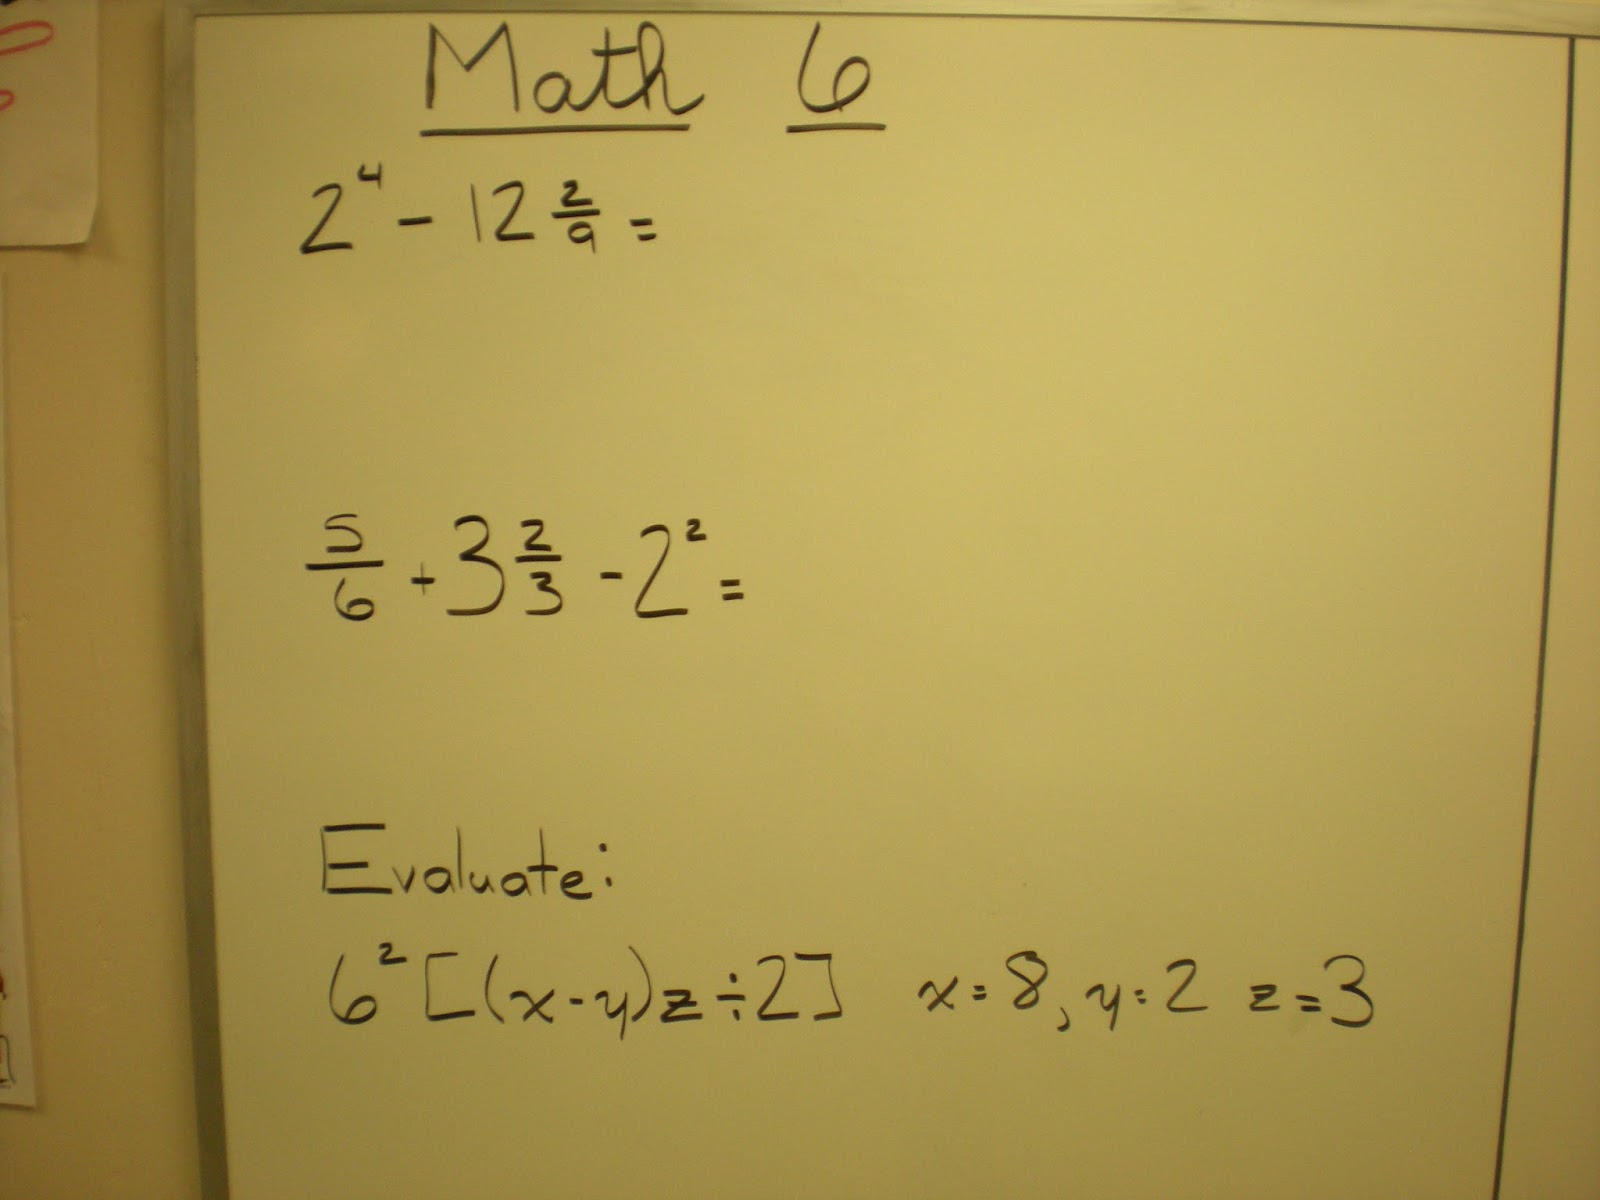 Math 6
2⁴ - 12 2/9 =
5/6 + 3 2/3 - 2² =
Evaluate:
6² [(x-y)z÷2] x=8, y=2 z=3